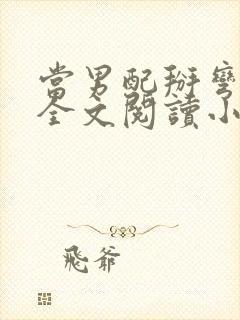 當男配掰彎
全文閱讀小
飛爺